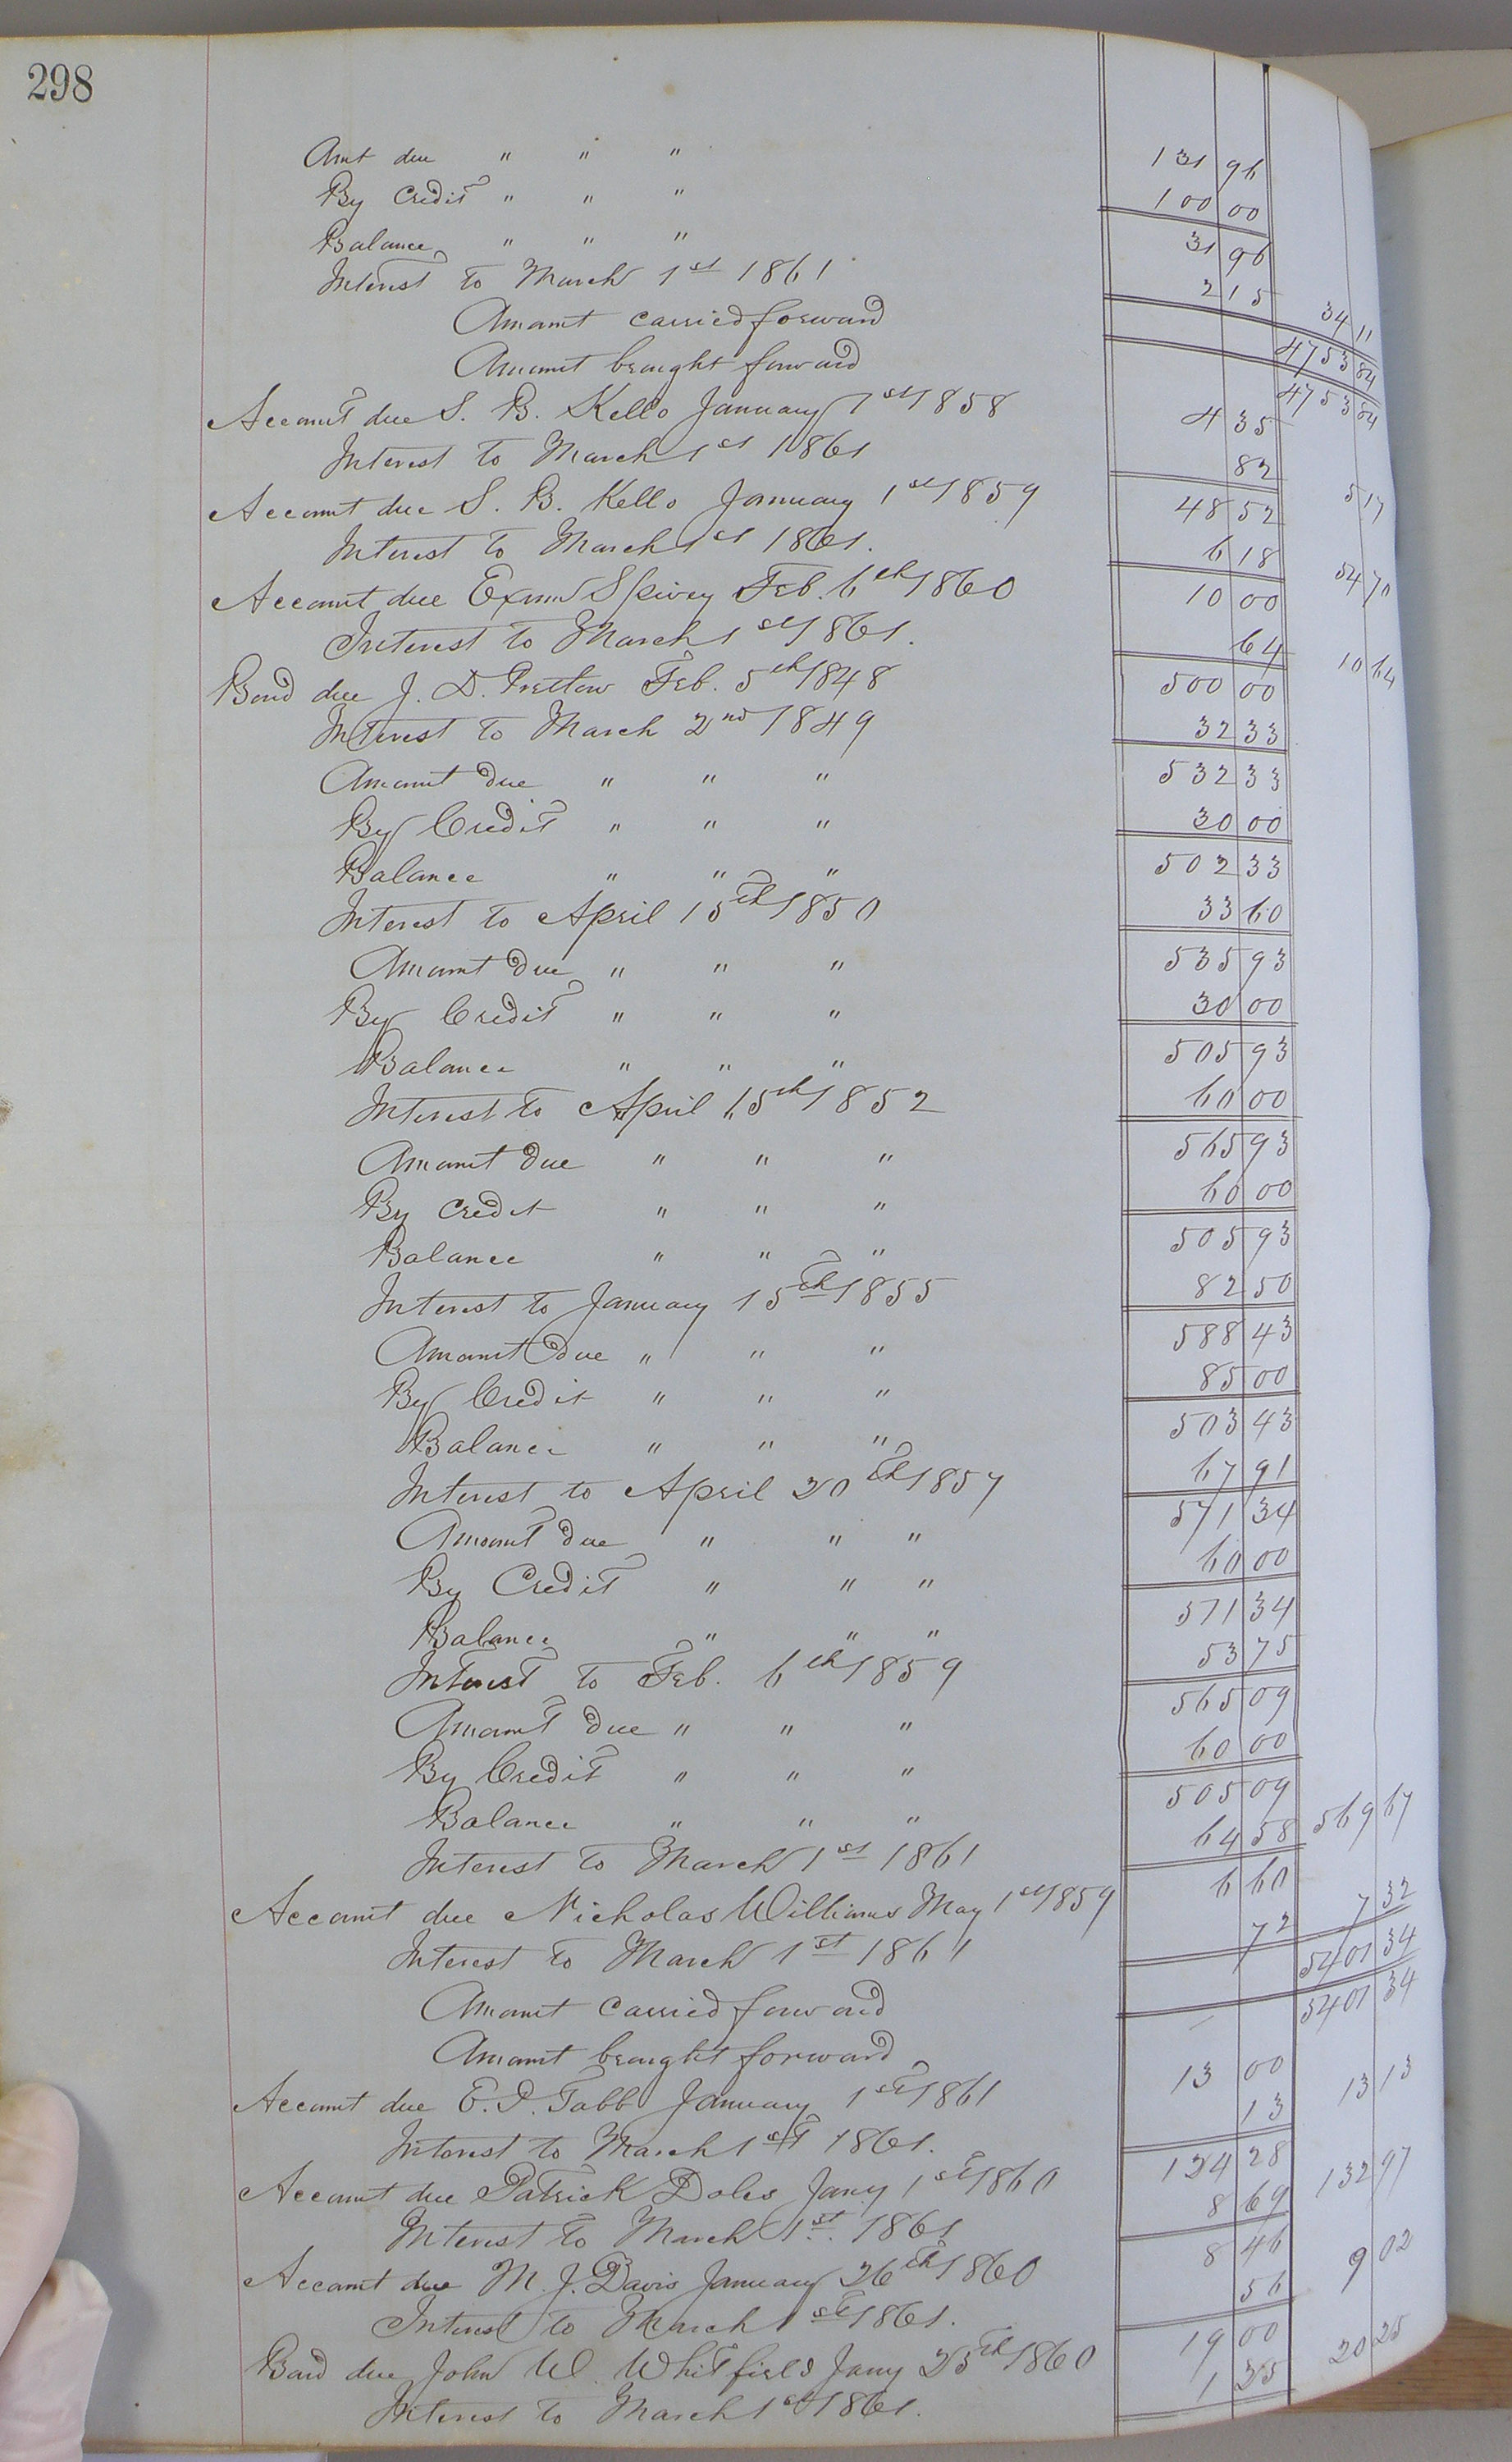 298
Amt due " " " 131 96
By Credit " " " 100 00
Balance " " " 31 96
Interest to March 1st 1861 2 15 34 11
Amount carried forward 4753 84
Amount brought forward 4753 84
Account due S. B. Kello January 1st 1858 4 35
Interest to March 1st 1861 82 5 17
Account due S. B. Kello January 1st 1859 48 52
Interest to March 1st 1861. 6 18 54 70
Account due Exum Spivey Feb. 6th 1860 10 00
Interest to March 1st 1861. 64 10 64
Bond due J. D. Pretlow Feb. 5th 1848 500 00
Interest to March 2nd 1849 32 33
Amount due " " " 532 33
By Credit " " " 30 00
Balance " " " 502 33
Interest to April 15th 1850 33 60
Amount due " " " 535 93
By Credit " " " 30 00
Balance " " " 505 93
Interest to April 15th 1852 60 00
Amount due " " " 565 93
By Credit " " " 60 00
Balance " " " 505 93
Interest to January 15th 1855 82 50
Amount due " " " 588 43
By Credit " " " 85 00
Balance " " " 503 43
Interest to April 20th 1857 67 91
Amount due " " " 571 34
By Credit " " " 60 00
Balance " " " 571 34
Interest to Feb. 6th 1859 53 75
Amount due " " " 565 09
By Credit " " " 60 00
Balance " " " 505 09
Interest to March 1st 1861 64 58 569 67
Account due Nicholas Williams May 1st 1859 6 60
Interest to March 1st 1861 72 7 32
Amount carried forward 5401 34
Amount brought forward 5401 34
Account due E. P. Tabb January 1st 1861 13 00
Interest to March 1st 1861. 13 13 13
Account due Patrick Doles Jany 1st 1860 124 28
Interest to March 1st 1861 8 69 132 97
Account due M. J. Davis January 26th 1860 8 46
Interest to March 1st 1861. 56 9 02
Bond due John W. Whitfield Jany 25th 1860 19 00
Interest to March 1st 1861. 1 25 20 25